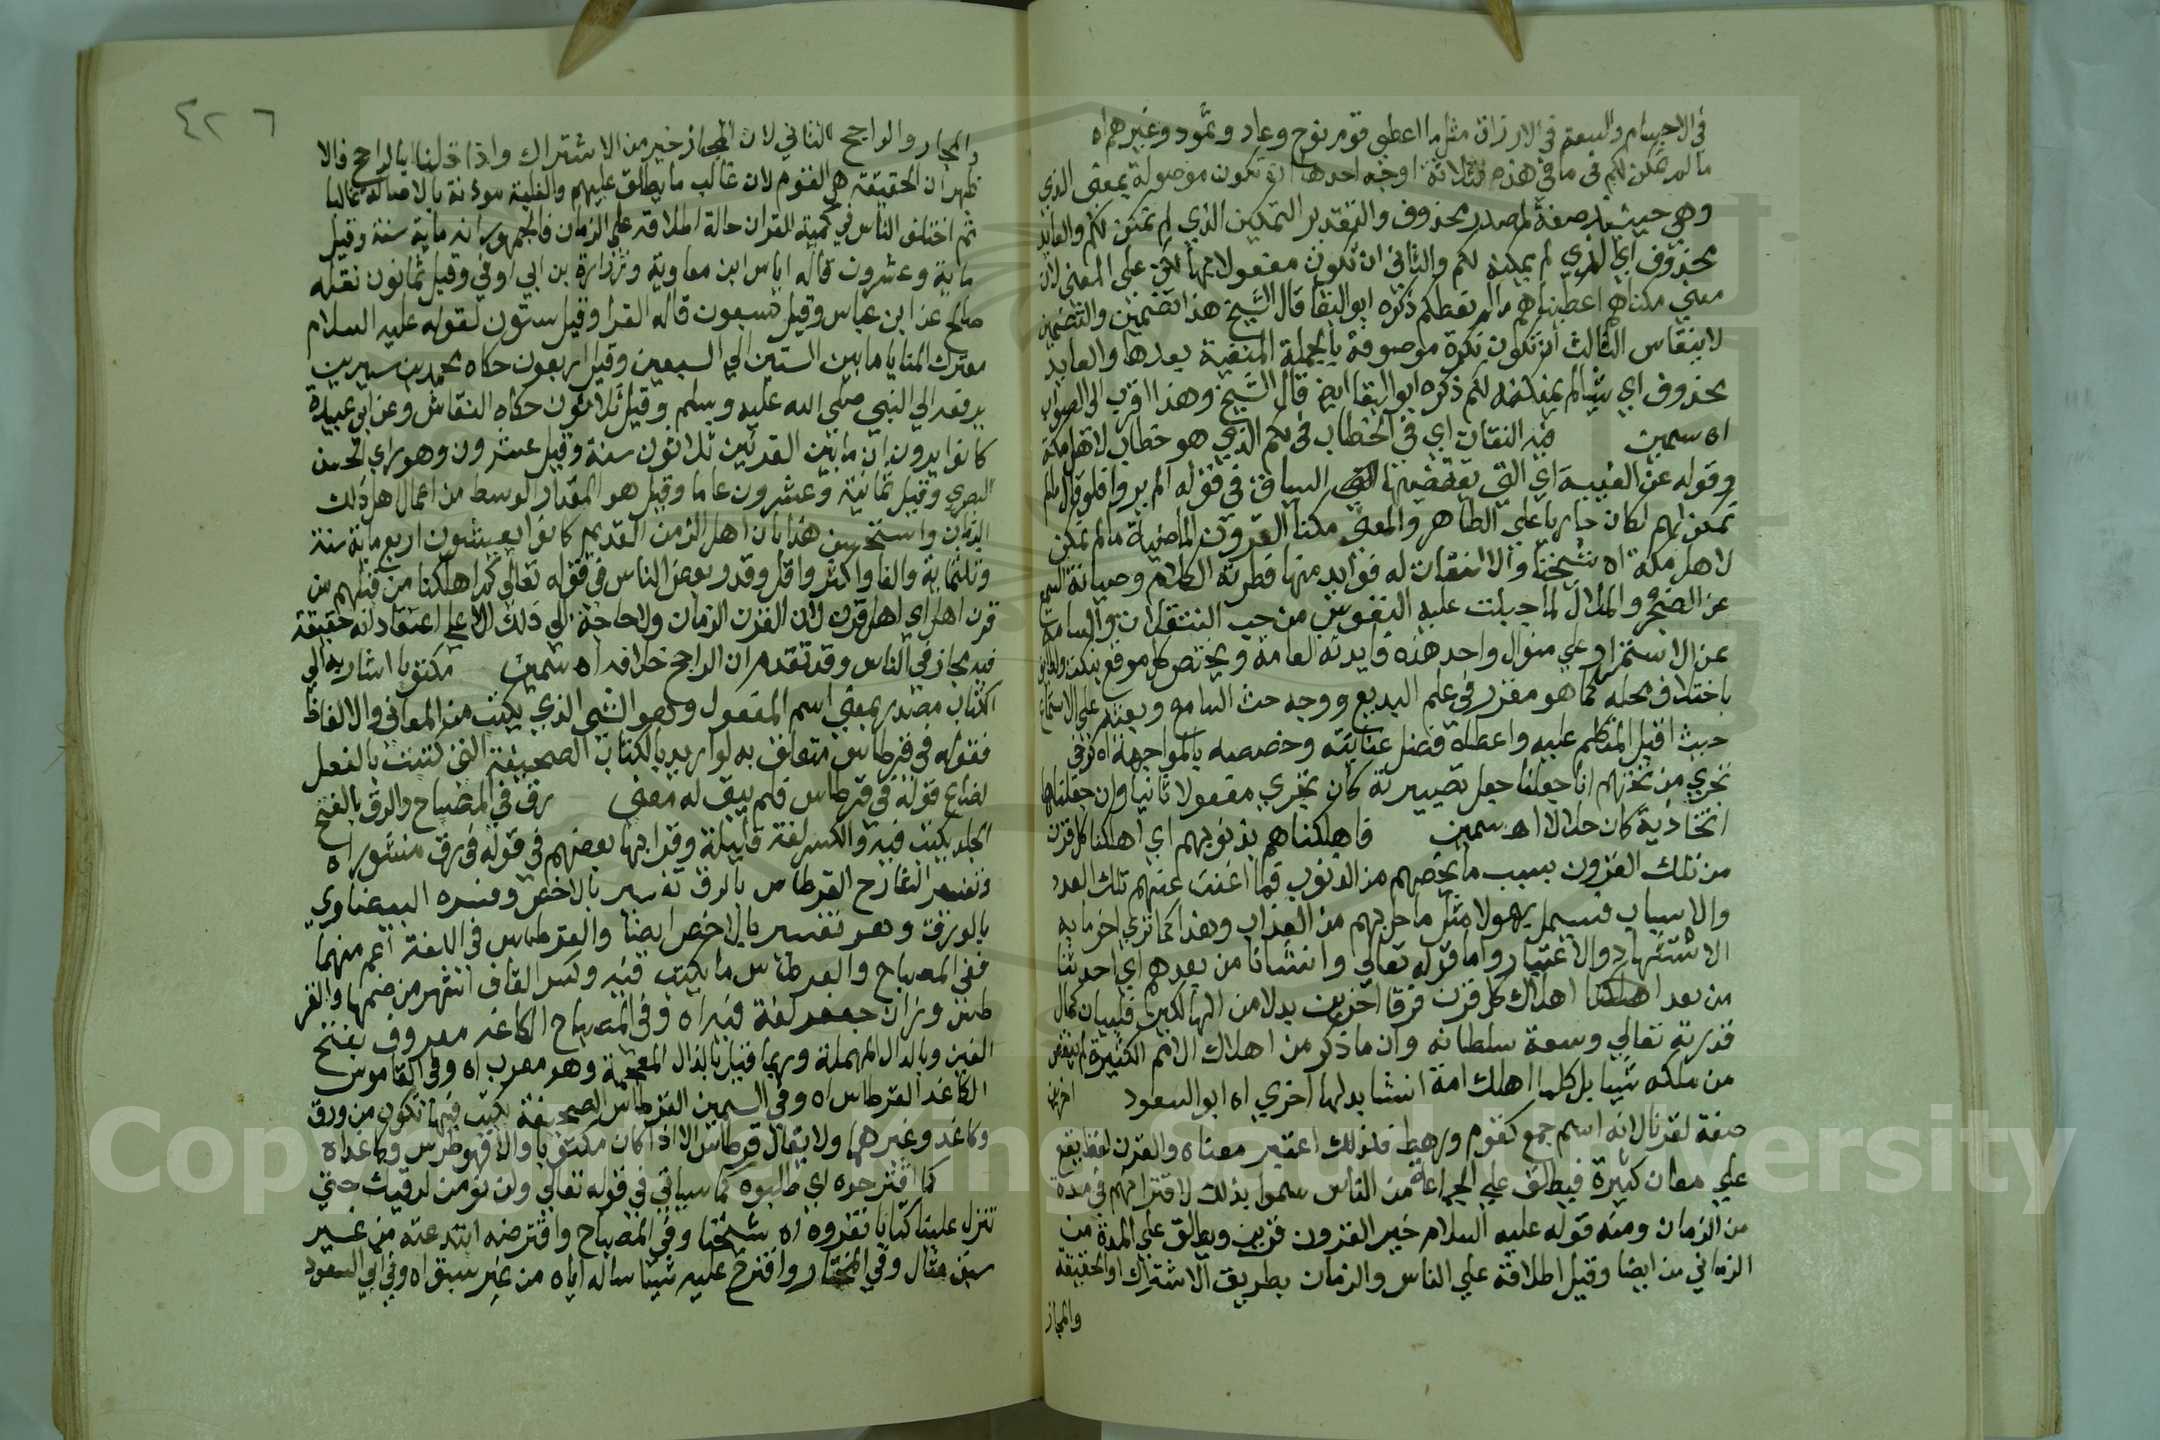 في الاجسام والسعة في الارزاق مثل ما اعطي قوم نوح وعاد وثمود وغيرهم اه
ما لم نمكن لكم في ما في هذه ثلاثة اوجه احدها ان تكون موصولة بمعني الذي
وهي حينئذ صفة لمصدر محذوف والتقدير التمكين الذي لم نمكن لكم والعايد
محذوف اي الذي لم نمكنه لكم والثاني ان تكون مفعولا بها لكن علي المعني لان
معني مكناهم اعطيناهم ما لم نعطكم ذكره ابو البقا قال الشيخ هذا تضمين والتضمين
لا ينقاس الثالث ان تكون نكرة موصوفة بالجملة المنفية بعدها والعايد
محذوف اي شيا لم نمكنه لكم ذكره ابو البقا ايضا قال الشيخ وهذا اقرب الي الصواب
اه سمين فيه التفات اي في الخطاب في لكم الذي هو خطاب لاهل مكة
وقوله عن الغيبة اي التي يقتضيها السياق في قوله الم يروا فلو قال ما لم
نمكن لهم لكان جاريا علي الظاهر والمعني مكنا القرون الماضية ما لم نمكن
لاهل مكة اه شيخنا والالتفات له فوايد منها تطرية الكلام وصيانة السمع
عن الضجر والملال لما جبلت عليه النفوس من حب التنقلات والسامة
من الاستمرار علي منوال واحد هذه فايدته العامة ويختص كل موقع بنكت ولطايف
باختلاف محله كما هو مقرر في علم البديع ووجه حث السامع وبعثه علي الاستماع
حيث اقبل المتكلم عليه واعطاه فضل عنايته وخصصه بالمواجهة اه كرخي
تجري من تحتهم ان جعلنا جعل تصييرية كان تجري مفعولا ثانيا وان جعلناها
اتخاذية كان حالا اه سمين فاهلكناهم بذنوبهم اي اهلكنا كل قرن
من تلك القرون بسبب ما يخصهم من الذنوب فما اغنت عنهم تلك العدد
والاسباب فسيحل بهولا مثل ما حل بهم من العذاب وهذا كما تري اخر ما به
الاستشهاد والاعتبار واما قوله تعالي وانشانا من بعدهم اي احدثنا
من بعد اهلاك كل قرن قرنا اخرين بدلا من الهالكين فلبيان كمال
قدرته تعالي وسعة سلطانه وان ما ذكر من اهلاك الامم الكثيرة لم ينقص
من ملكه شيا بل كلما اهلك امة انشا بدلها اخري اه ابو السعود اخرين
صفة لقرنا لانه اسم جمع كقوم ورهط فلذلك اعتبر معناه والقرن لفظ يقع
علي معان كثيرة فيطلق علي الجماعة من الناس سموا بذلك لاقترانهم في مدة
من الزمان ومنه قوله عليه السلام خير القرون قرني ويطلق علي المدة من
الزمان من ايضا وقيل اطلاقه علي الناس والزمان بطريق الاشتراك او الحقيقة
والمجاز
٤٢٦
والمجاز والراجح الثاني لان المجاز خير من الاشتراك واذا قلنا بالراجح فالا
ظهر ان الحقيقة هي القوم لان غالب ما يطلق عليهم والغلبة موذنة بالاصالة غالبا
ثم اختلف الناس في كمية القرن حالة اطلاقه علي الزمان فالجمهور انه ماية سنة وقيل
ماية وعشرون قاله اياس ابن معاوية وزرارة بن ابي اوفي وقيل ثمانون نقله
صالح عن ابن عباس وقيل سبعون قاله الفرا وقيل ستون لقوله عليه السلام
معترك المنايا ما بين الستين الي السبعين وقيل اربعون حكاه محمد بن سيرين
يرفعه الي النبي صلي الله عليه وسلم وقيل ثلاثون حكاه النقاش وعن ابي عبيدة
كانوا يرون ان ما بين القرنين ثلاثون سنة وقيل عشرون وهو راي الحسن
البصري وقيل ثمانية وعشرون عاما وقيل هو المقدار الوسط من اعمال اهل ذلك
الزمان واستحسن هذا بان اهل الزمن القديم كانوا يعيشون اربع ماية سنة
وثلثماية والفا واكثر واقل وقدر بعض الناس في قوله تعالي كم اهلكنا من قبلهم من
قرن اهل اي اهل قرن لان القرن الزمان ولا حاجة الي ذلك الا علي اعتقاد انه حقيقة
فيه مجاز في الناس وقد تقدم ان الراجح خلافه اه سمين مكتوبا اشار به الي
الكتاب مصدر بمعني اسم المفعول وهو الشي الذي يكتب من المعاني والالفاظ
فقوله في قرطاس متعلق به لو اريد بالكتاب الصحيفة التي كتبت بالفعل
لضاع قوله في قرطاس فلم يبق له معني رق في المصباح والرق بالفتح
الجلد يكتب فيه والكسر لغة قليلة وقرا بها بعضهم في قوله في رق منشور اه
وتفسير الشارح القرطاس بالرق تفسير بالاخص وفسره البيضاوي
بالورق وهو تفسير بالاخص ايضا والقرطاس في اللغة اعم منهما
ففي المصباح والقرطاس ما يكتب فيه وكسر القاف اشهر من ضمها والقر
طس وزان جعفر لغة فيه اه وفي المصباح الكاغد معروف بفتح
الغين وبالدال المهملة وربما قيل بالذال المعجمة وهو معرب اه وفي القاموس
الكاغد القرطاس اه وفي السمين القرطاس الصحيفة يكتب فيها تكون من ورق
وكاغد وغيرهما ولا يقال قرطاس الا اذا كان مكتوبا والا فهو طرس وكاغد اه
كما اقترحوه اي طلبوه كما سياتي في قوله تعالي ولن نومن لرقيك حتي
تنزل علينا كتابا نقروه اه شيخنا وفي المصباح واقترحته ابتدعته من غير
سبق مثال وفي المختار واقترح عليه شيئا ساله اياه من غير سبق اه وفي ابي السعود
Copyright © King Saud University